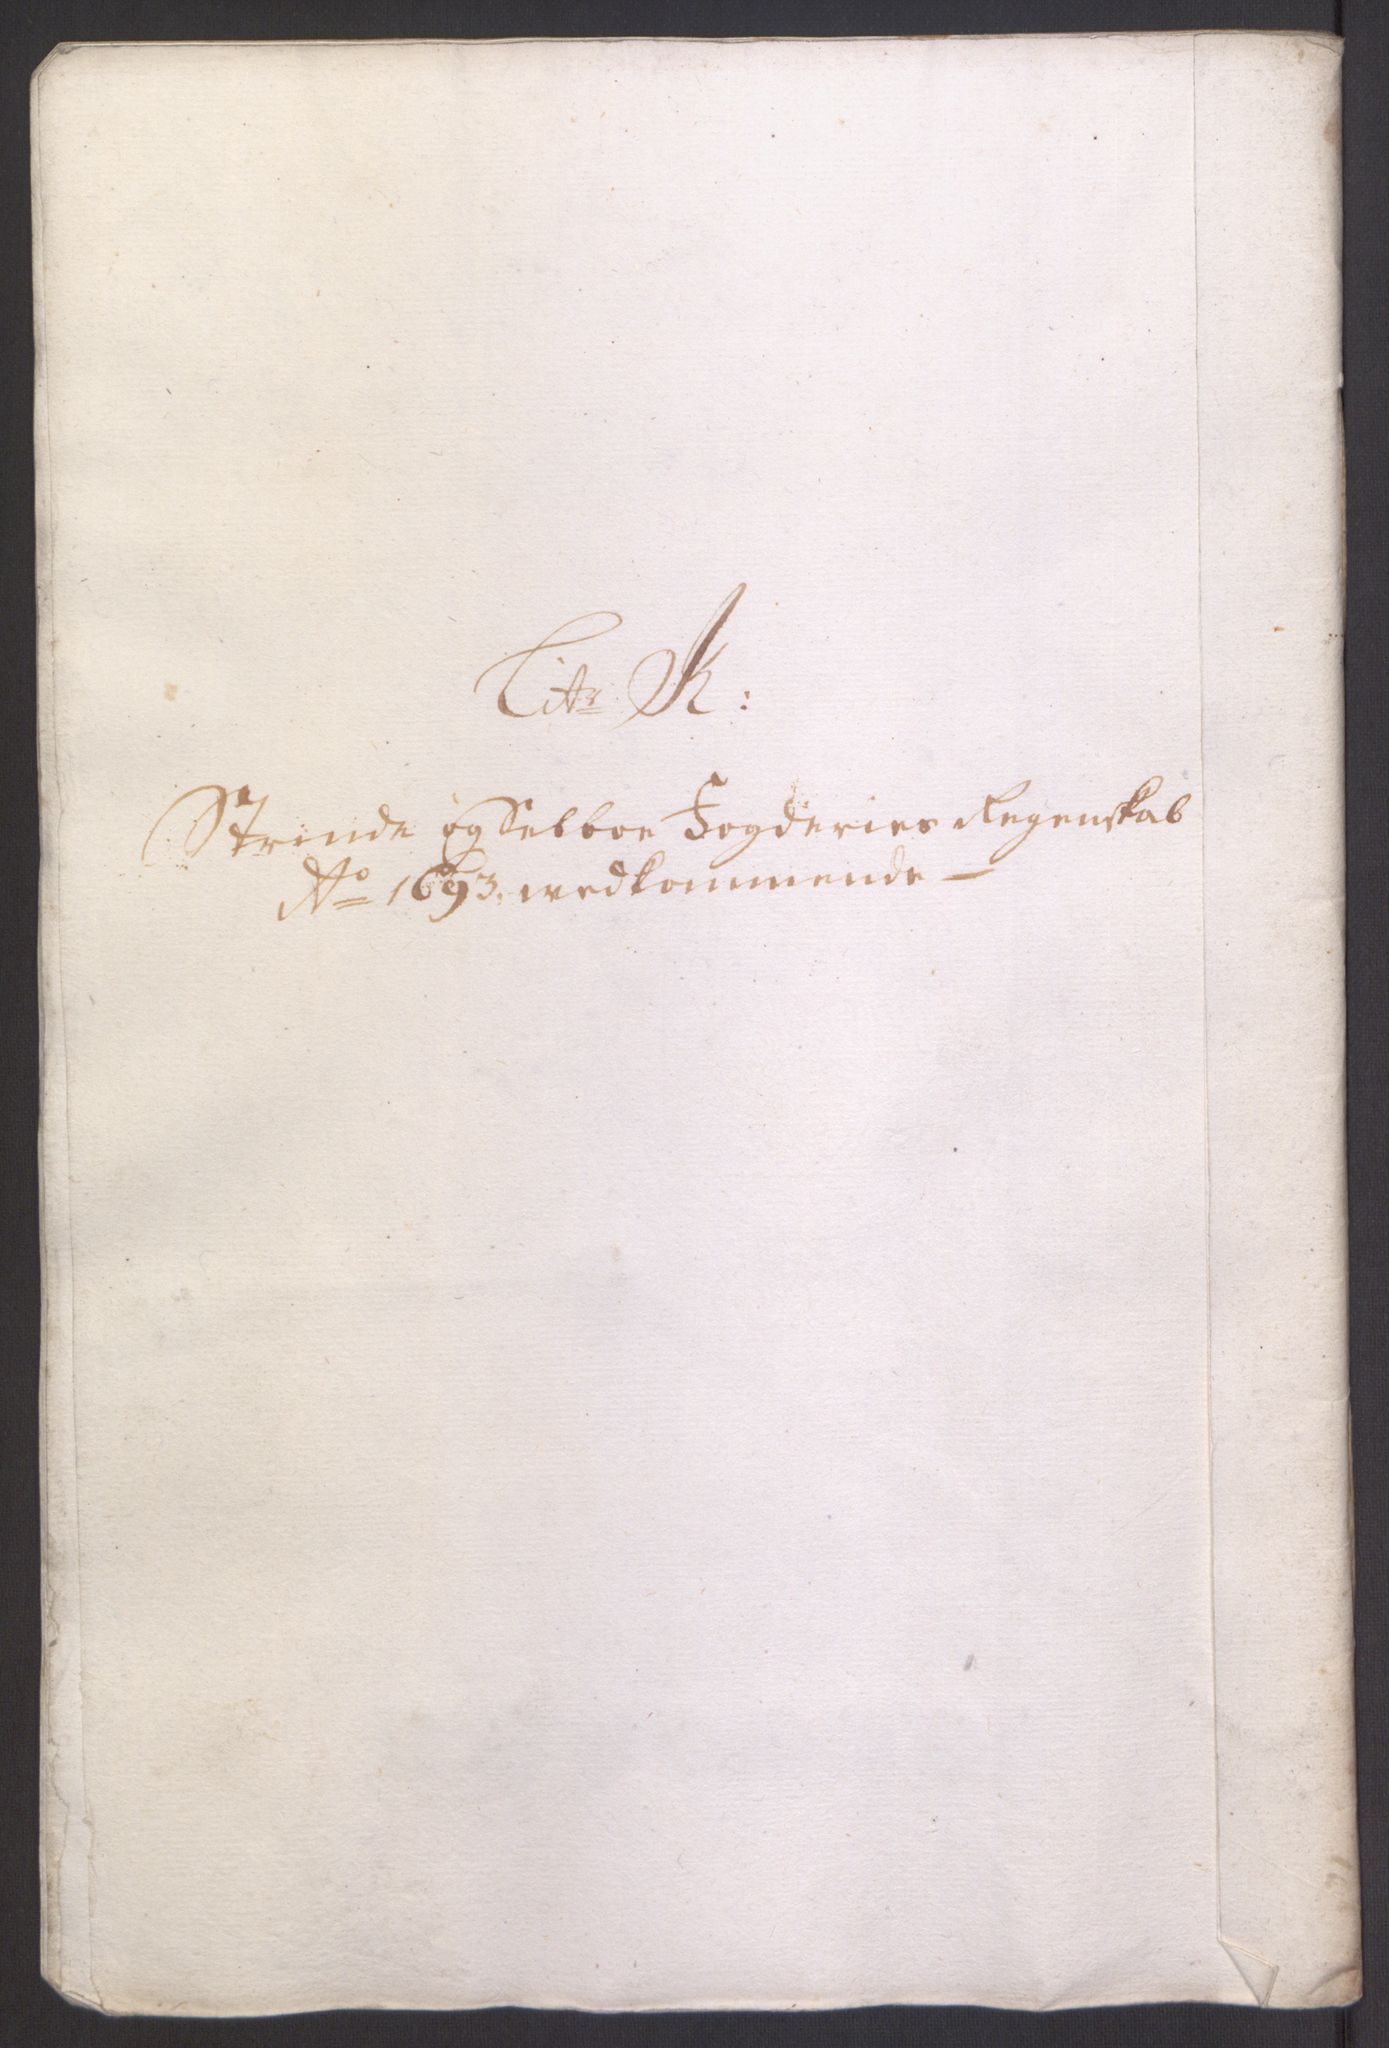 Litr K:
Strinde og Selboe Fogderies Regenskab
Ao 1693. wedkommende —